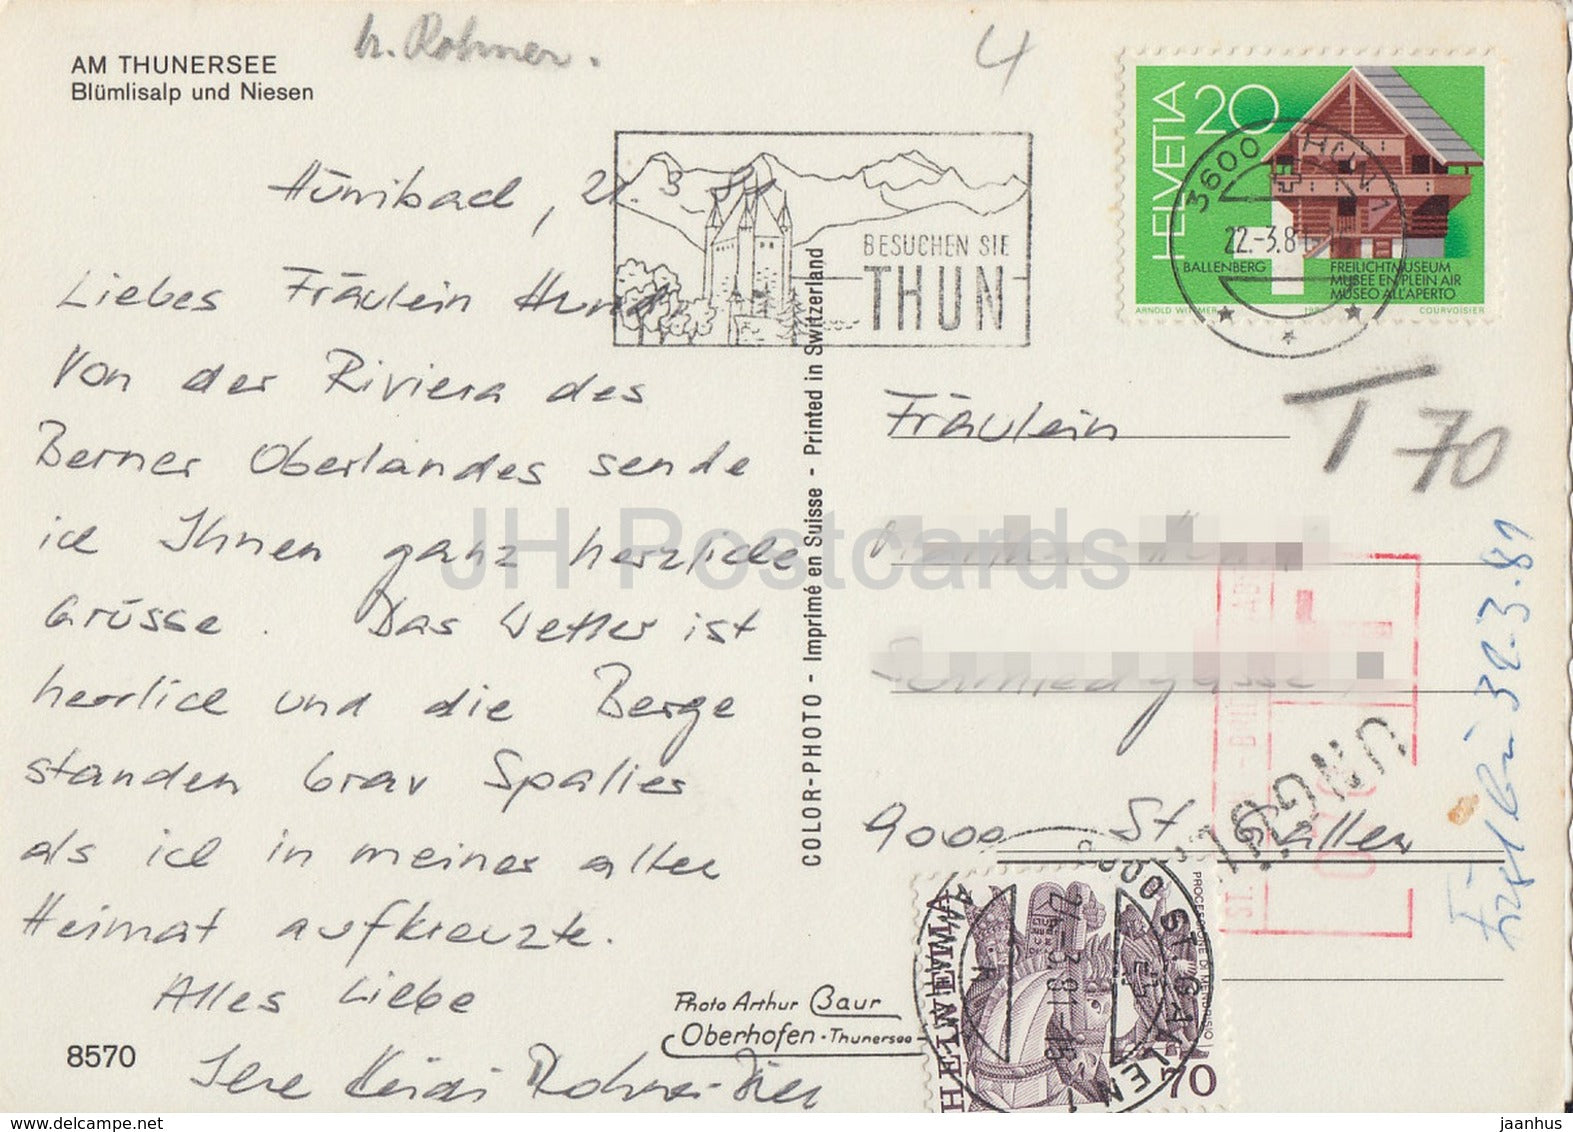 h. Rohmer.
4
AM THUNERSEE
Blümlisalp und Niesen
Hünibach, 21. 3. 81
Liebes Fräulein Hund,
Von der Riviera des
Berner Oberlandes sende
ich Ihnen ganz herzliche
Grüsse. Das Wetter ist
herrlich und die Berge
standen brav Spalier
als ich in meiner alten
Heimat aufkreuzte.
Alles Liebe
Ihre Heidi Rohner-
8570
Photo Arthur Baur
Oberhofen - Thunersee
COLOR-PHOTO - Imprimé en Suisse - Printed in Switzerland
BESUCHEN SIE
THUN
HELVETIA 20
BALLENBERG
FREILICHTMUSEUM
MUSEE EN PLEIN AIR
MUSEO ALL'APERTO
ARNOLD WITTMER
COURVOISIER
3600 THUN 1
22.-3.81
T 70
Fräulein
9000 St. Gallen
UNGÜLTIG
32.3.81
HELVETIA
70
PROCESSIONE DI MENDRISIO
9000 ST. GALLEN 1
24.-3.81-18
JH Postcards
www.delcampe.net
jaanhus